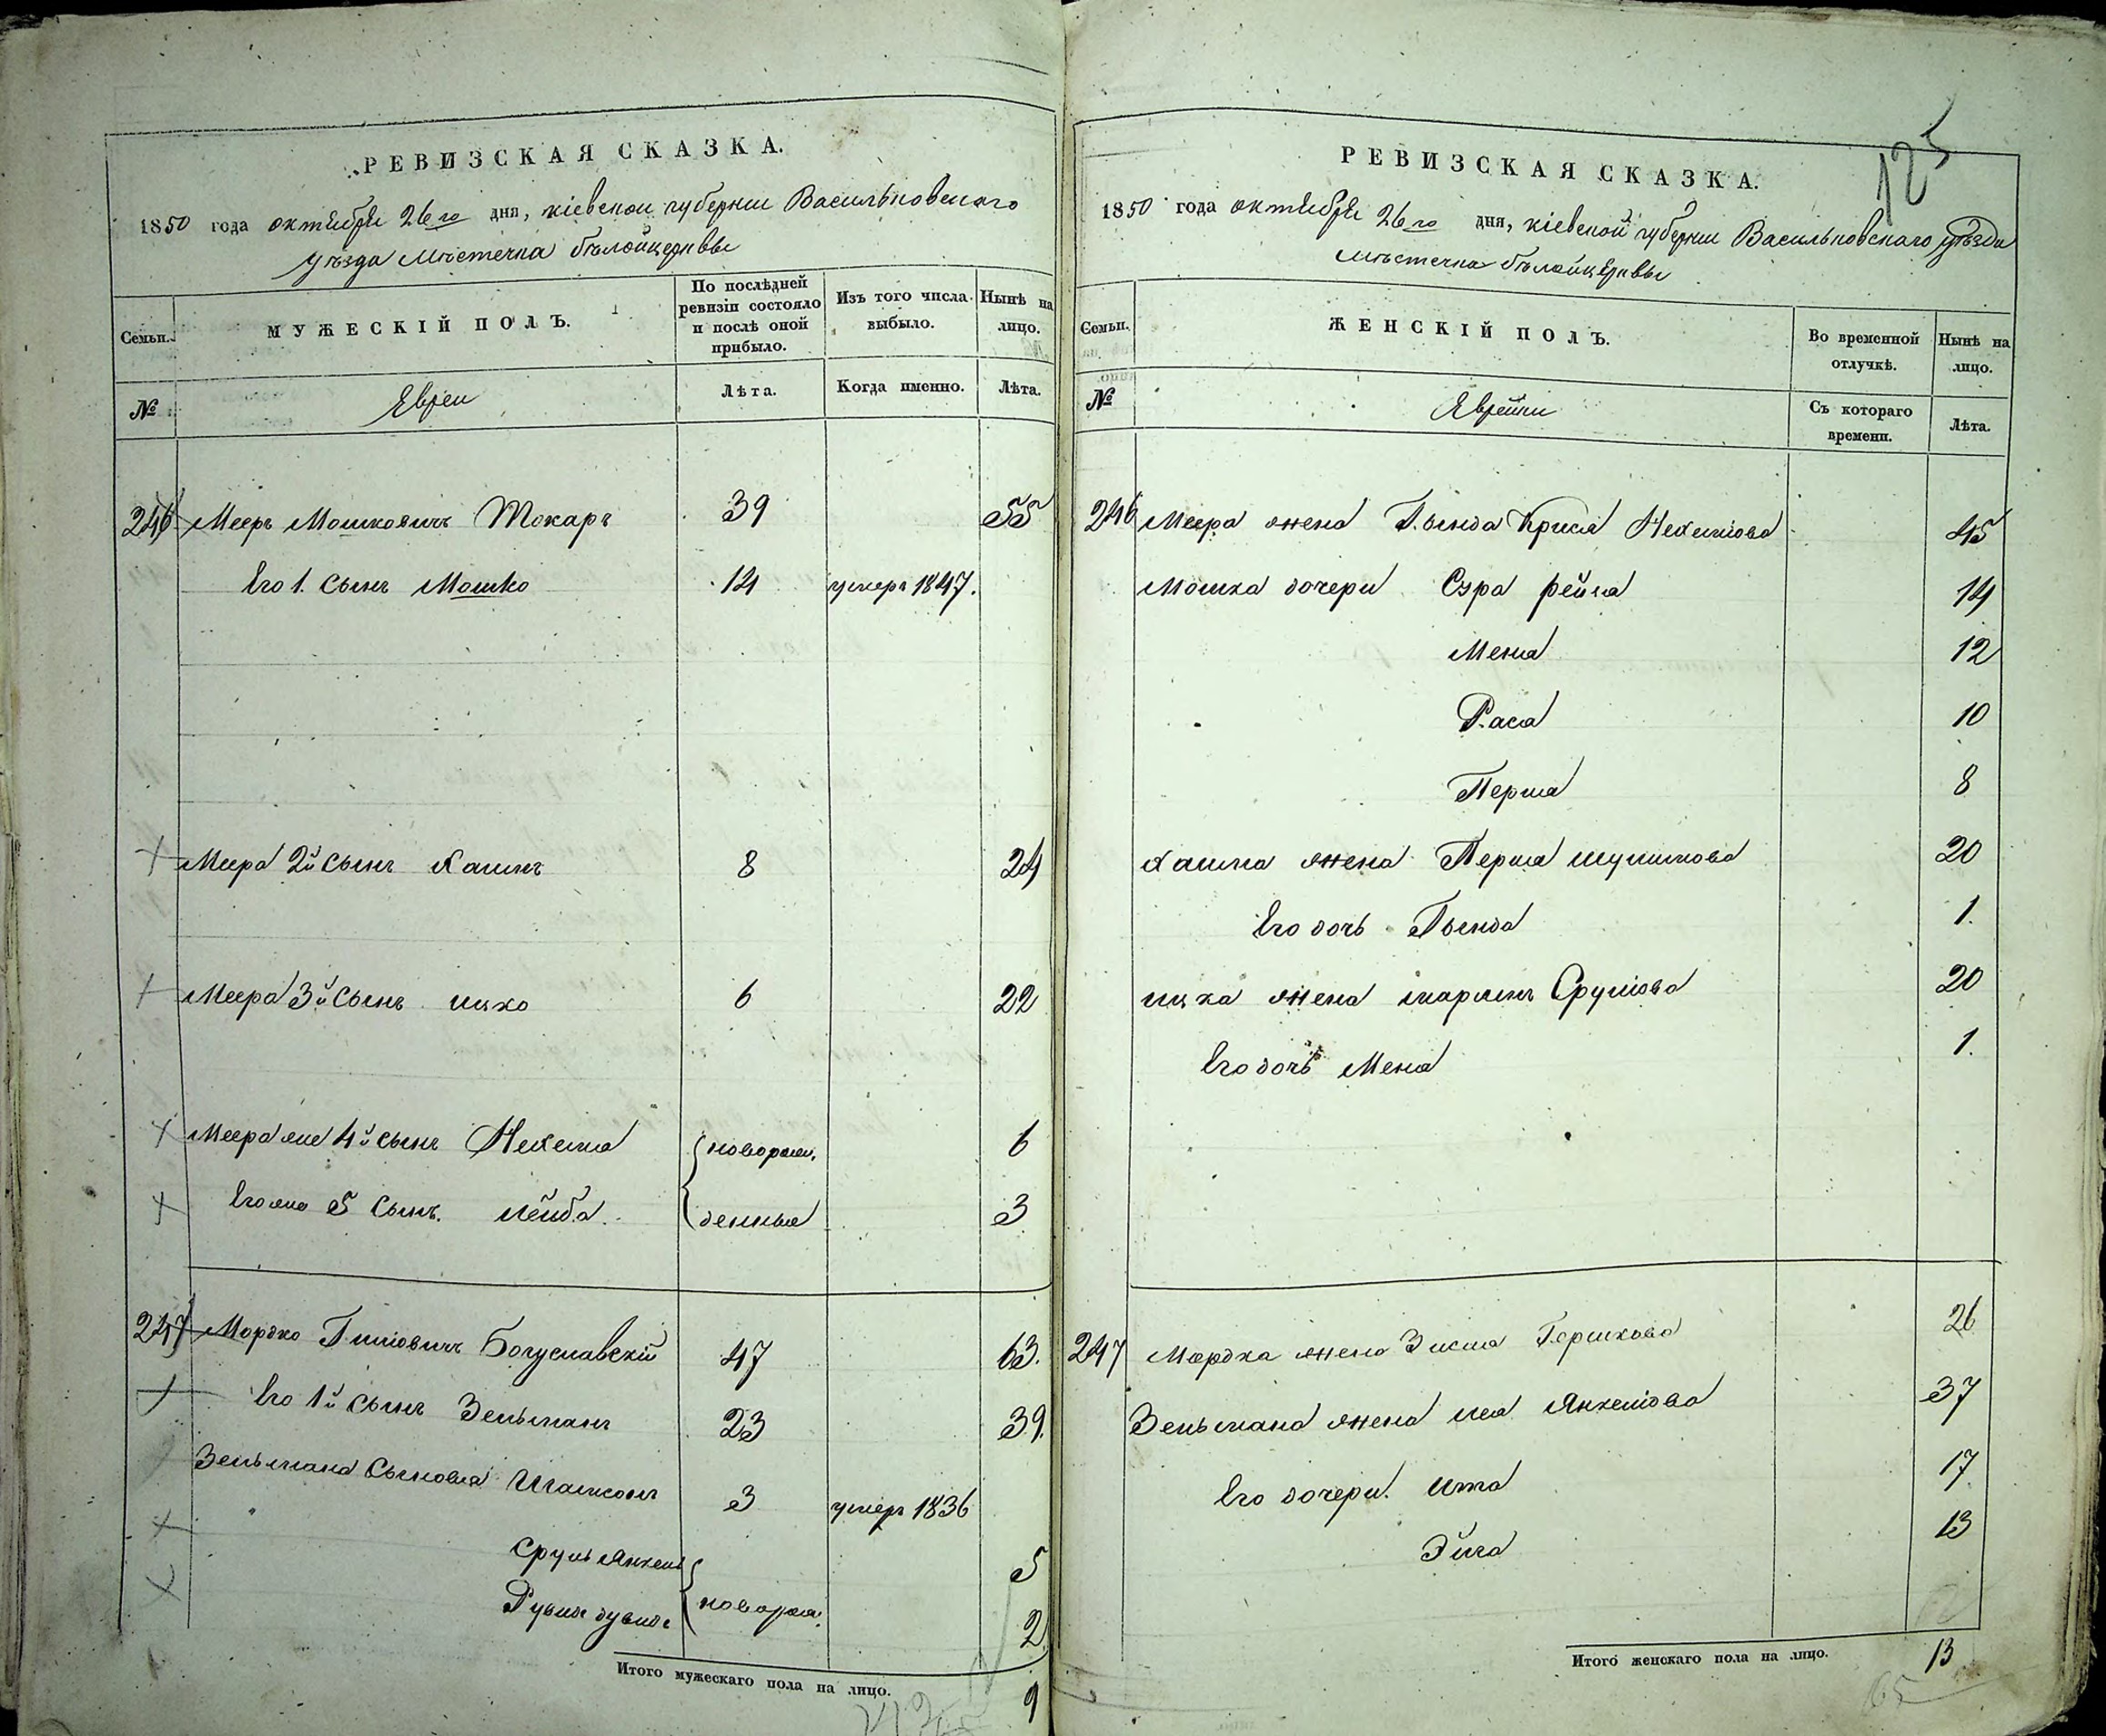 РЕВИЗСКАЯ СКАЗКА.
1850 года октября 26го дня, кіевской губерніи Васильковскаго
уѣзда мѣстечка бѣлойцеркви
Семьи.
МУЖЕСКІЙ ПОЛЪ.
По послѣдней ревизіи состояло и послѣ оной прибыло.
Изъ того числа выбыло.
Нынѣ на лицо.
№
Евреи
Лѣта.
Когда именно.
Лѣта.
246 Мееръ Мошковичъ Токаръ 39 55
Его 1. сынъ Мошко 14 умеръ 1847.
Меера 2й сынъ Хаимъ 8 24
Меера 3й сынъ ицко 6 22
Меера же 4й сынъ Нехема { новорож. 6
Его же 5 сынъ. лейба { денные 3
247 Мордко Богуславскій 47 63.
Его 1й сынъ Зельманъ 23 39.
Зельмана сыновья Шамсонъ 3 умеръ 1836
Сруль Янкель { 5
Рувинъ { новорож. 2
Итого мужескаго пола на лицо. 9
125
РЕВИЗСКАЯ СКАЗКА.
1850 года октября 26го дня, кіевской губерніи Васильковскаго уѣзда
мѣстечка бѣлойцеркви
Семьи.
ЖЕНСКІЙ ПОЛЪ.
Во временной отлучкѣ.
Нынѣ на лицо.
№
Еврейки
Съ котораго времени.
Лѣта.
246 Меера жена Крися 45
Мошка дочери Сура рейза 14
Меня 12
Раса 10
Перля 8
Хаима жена Перля 20
Его дочь 1.
ицка жена Срулiова 20
Его дочь Меня 1.
247 Мордка жена Зисля Гершкова 26
Зельмана жена лея Янкелiова 37
Его дочери. ита 17
Эйга 13
Итого женскаго пола на лицо. 13
65